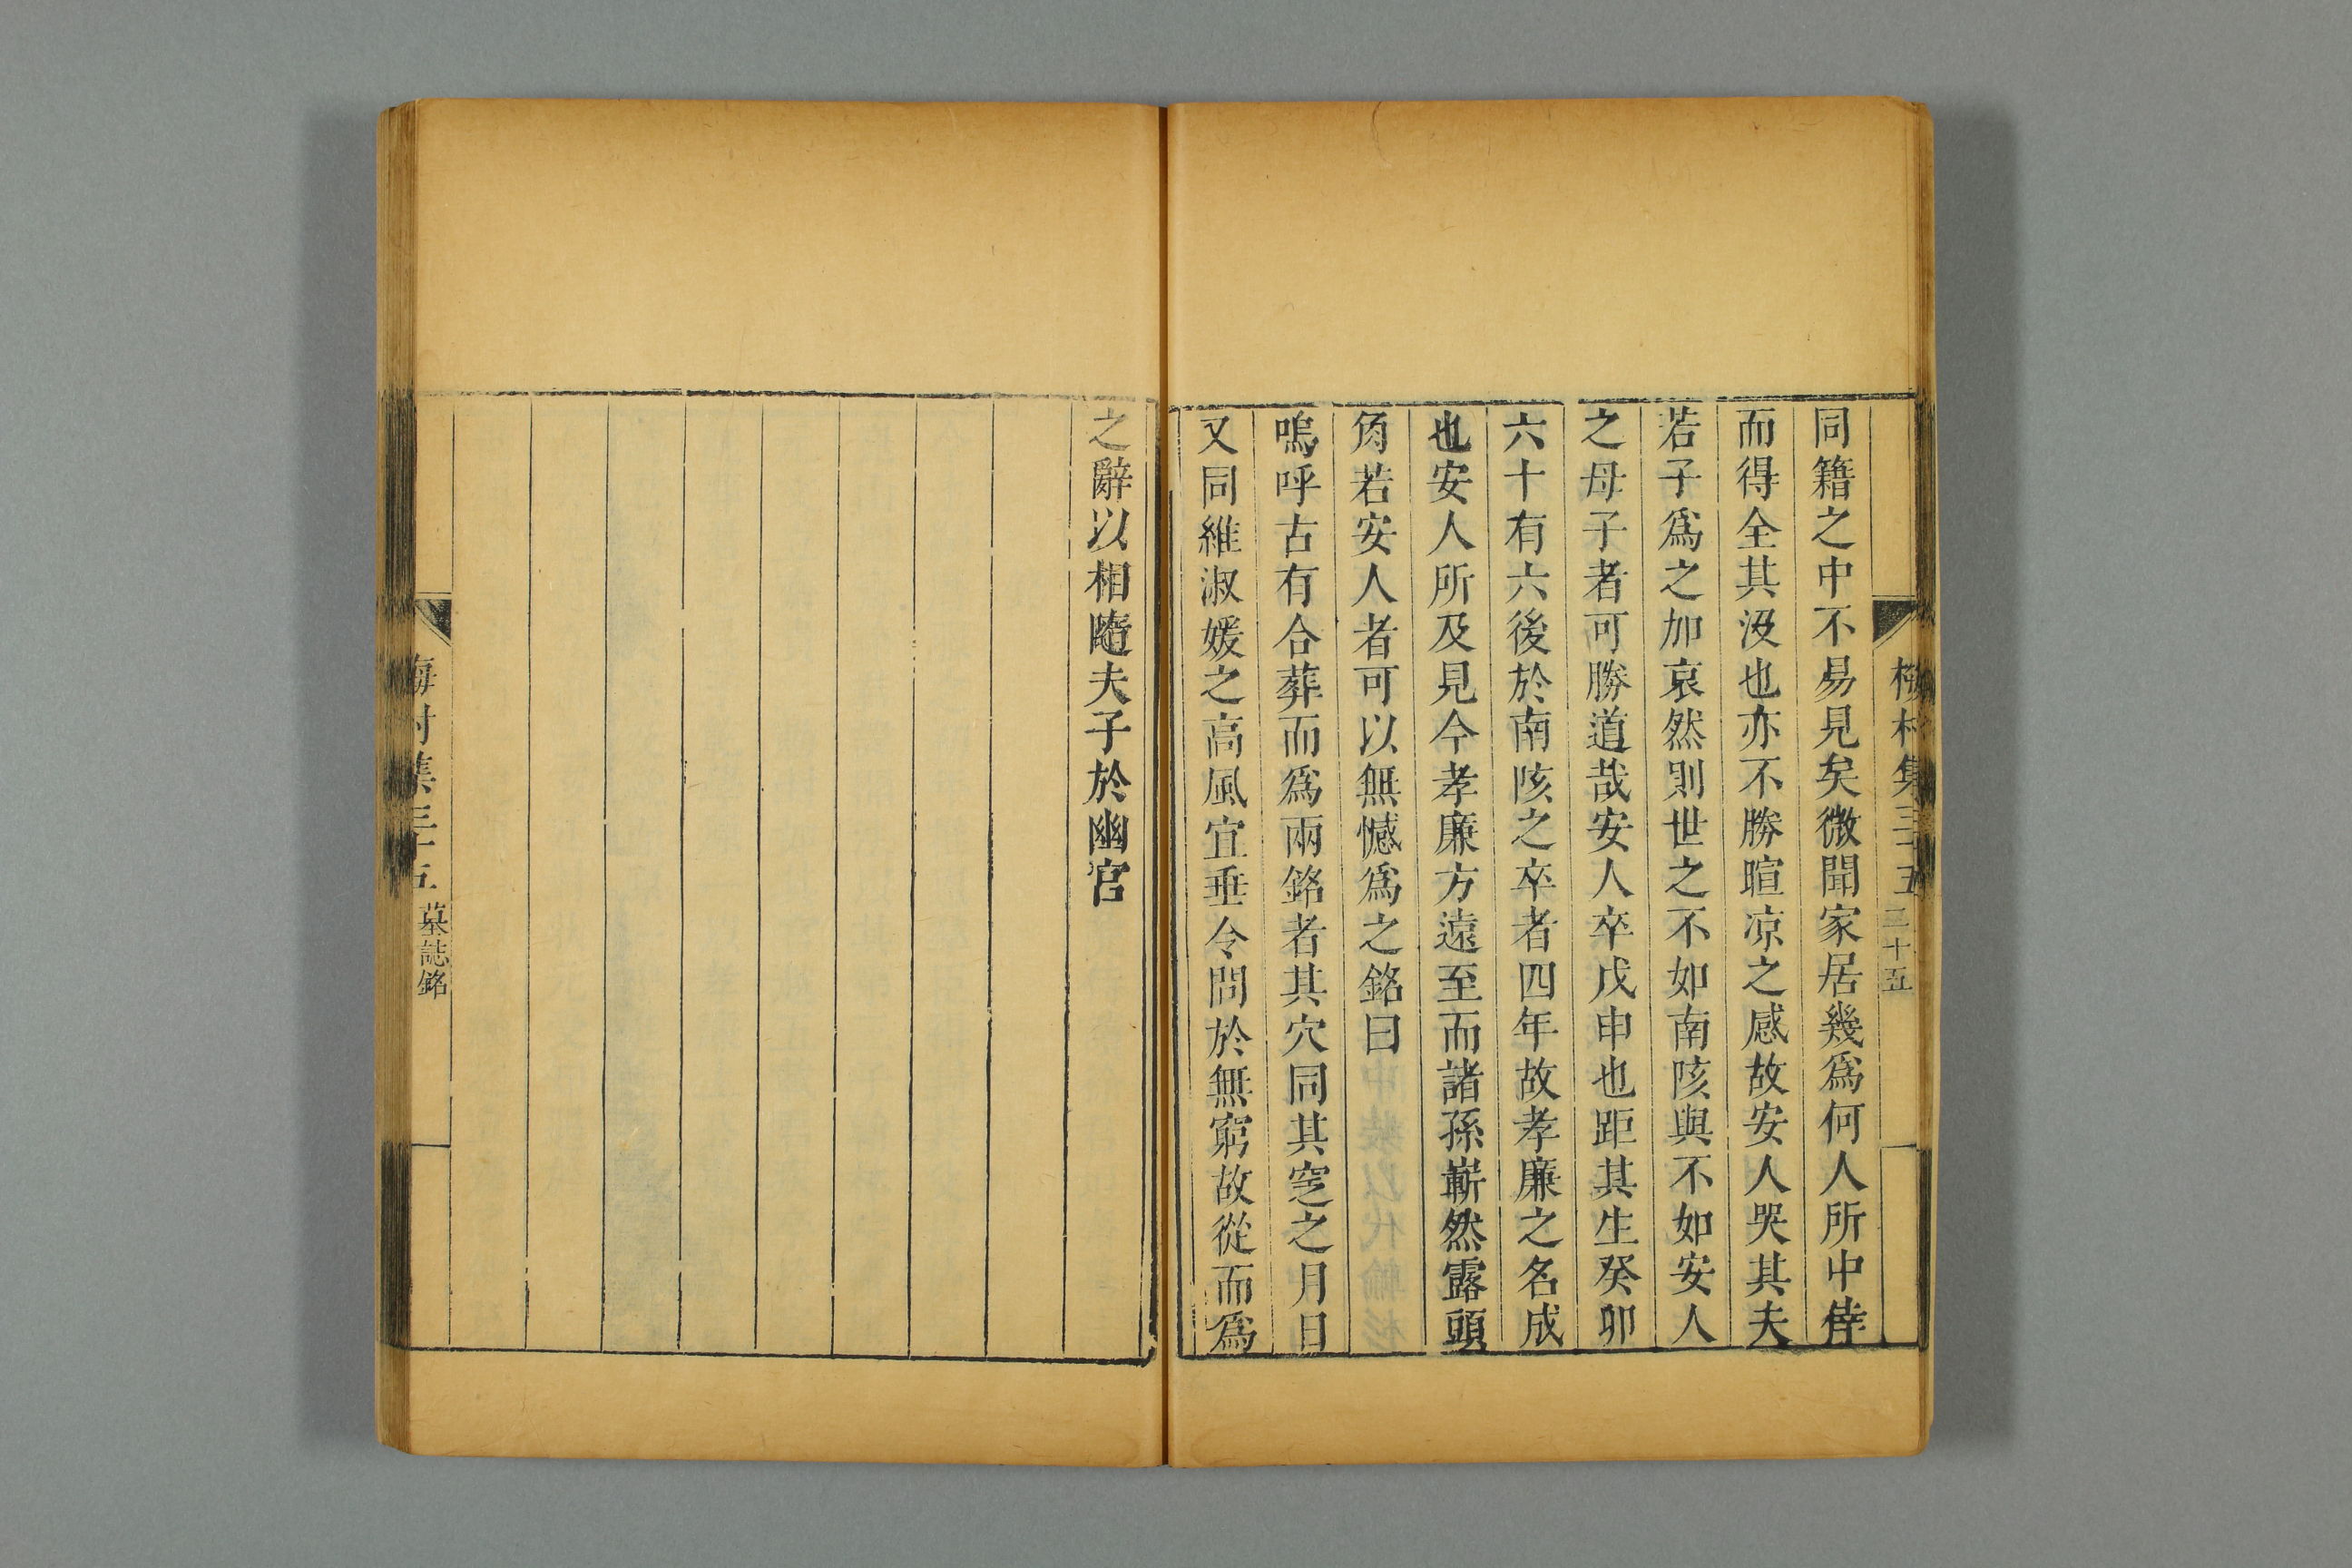 梅村集三十五 二十五
同籍之中不易見矣微聞家居幾爲何人所中倖
而得全其沒也亦不勝暄凉之感故安人哭其夫
若子爲之加哀然則世之不如南陔與不如安人
之母子者可勝道哉安人卒戊申也距其生癸卯
六十有六後於南陔之卒者四年故孝廉之名成
也安人所及見今孝廉方遠至而諸孫嶄然露頭
角若安人者可以無憾爲之銘曰
嗚呼古有合葬而爲兩銘者其穴同其窆之月日
又同維淑媛之高風宜垂令問於無窮故從而爲
之辭以相隨夫子於幽宮
梅村集三十五 墓誌銘